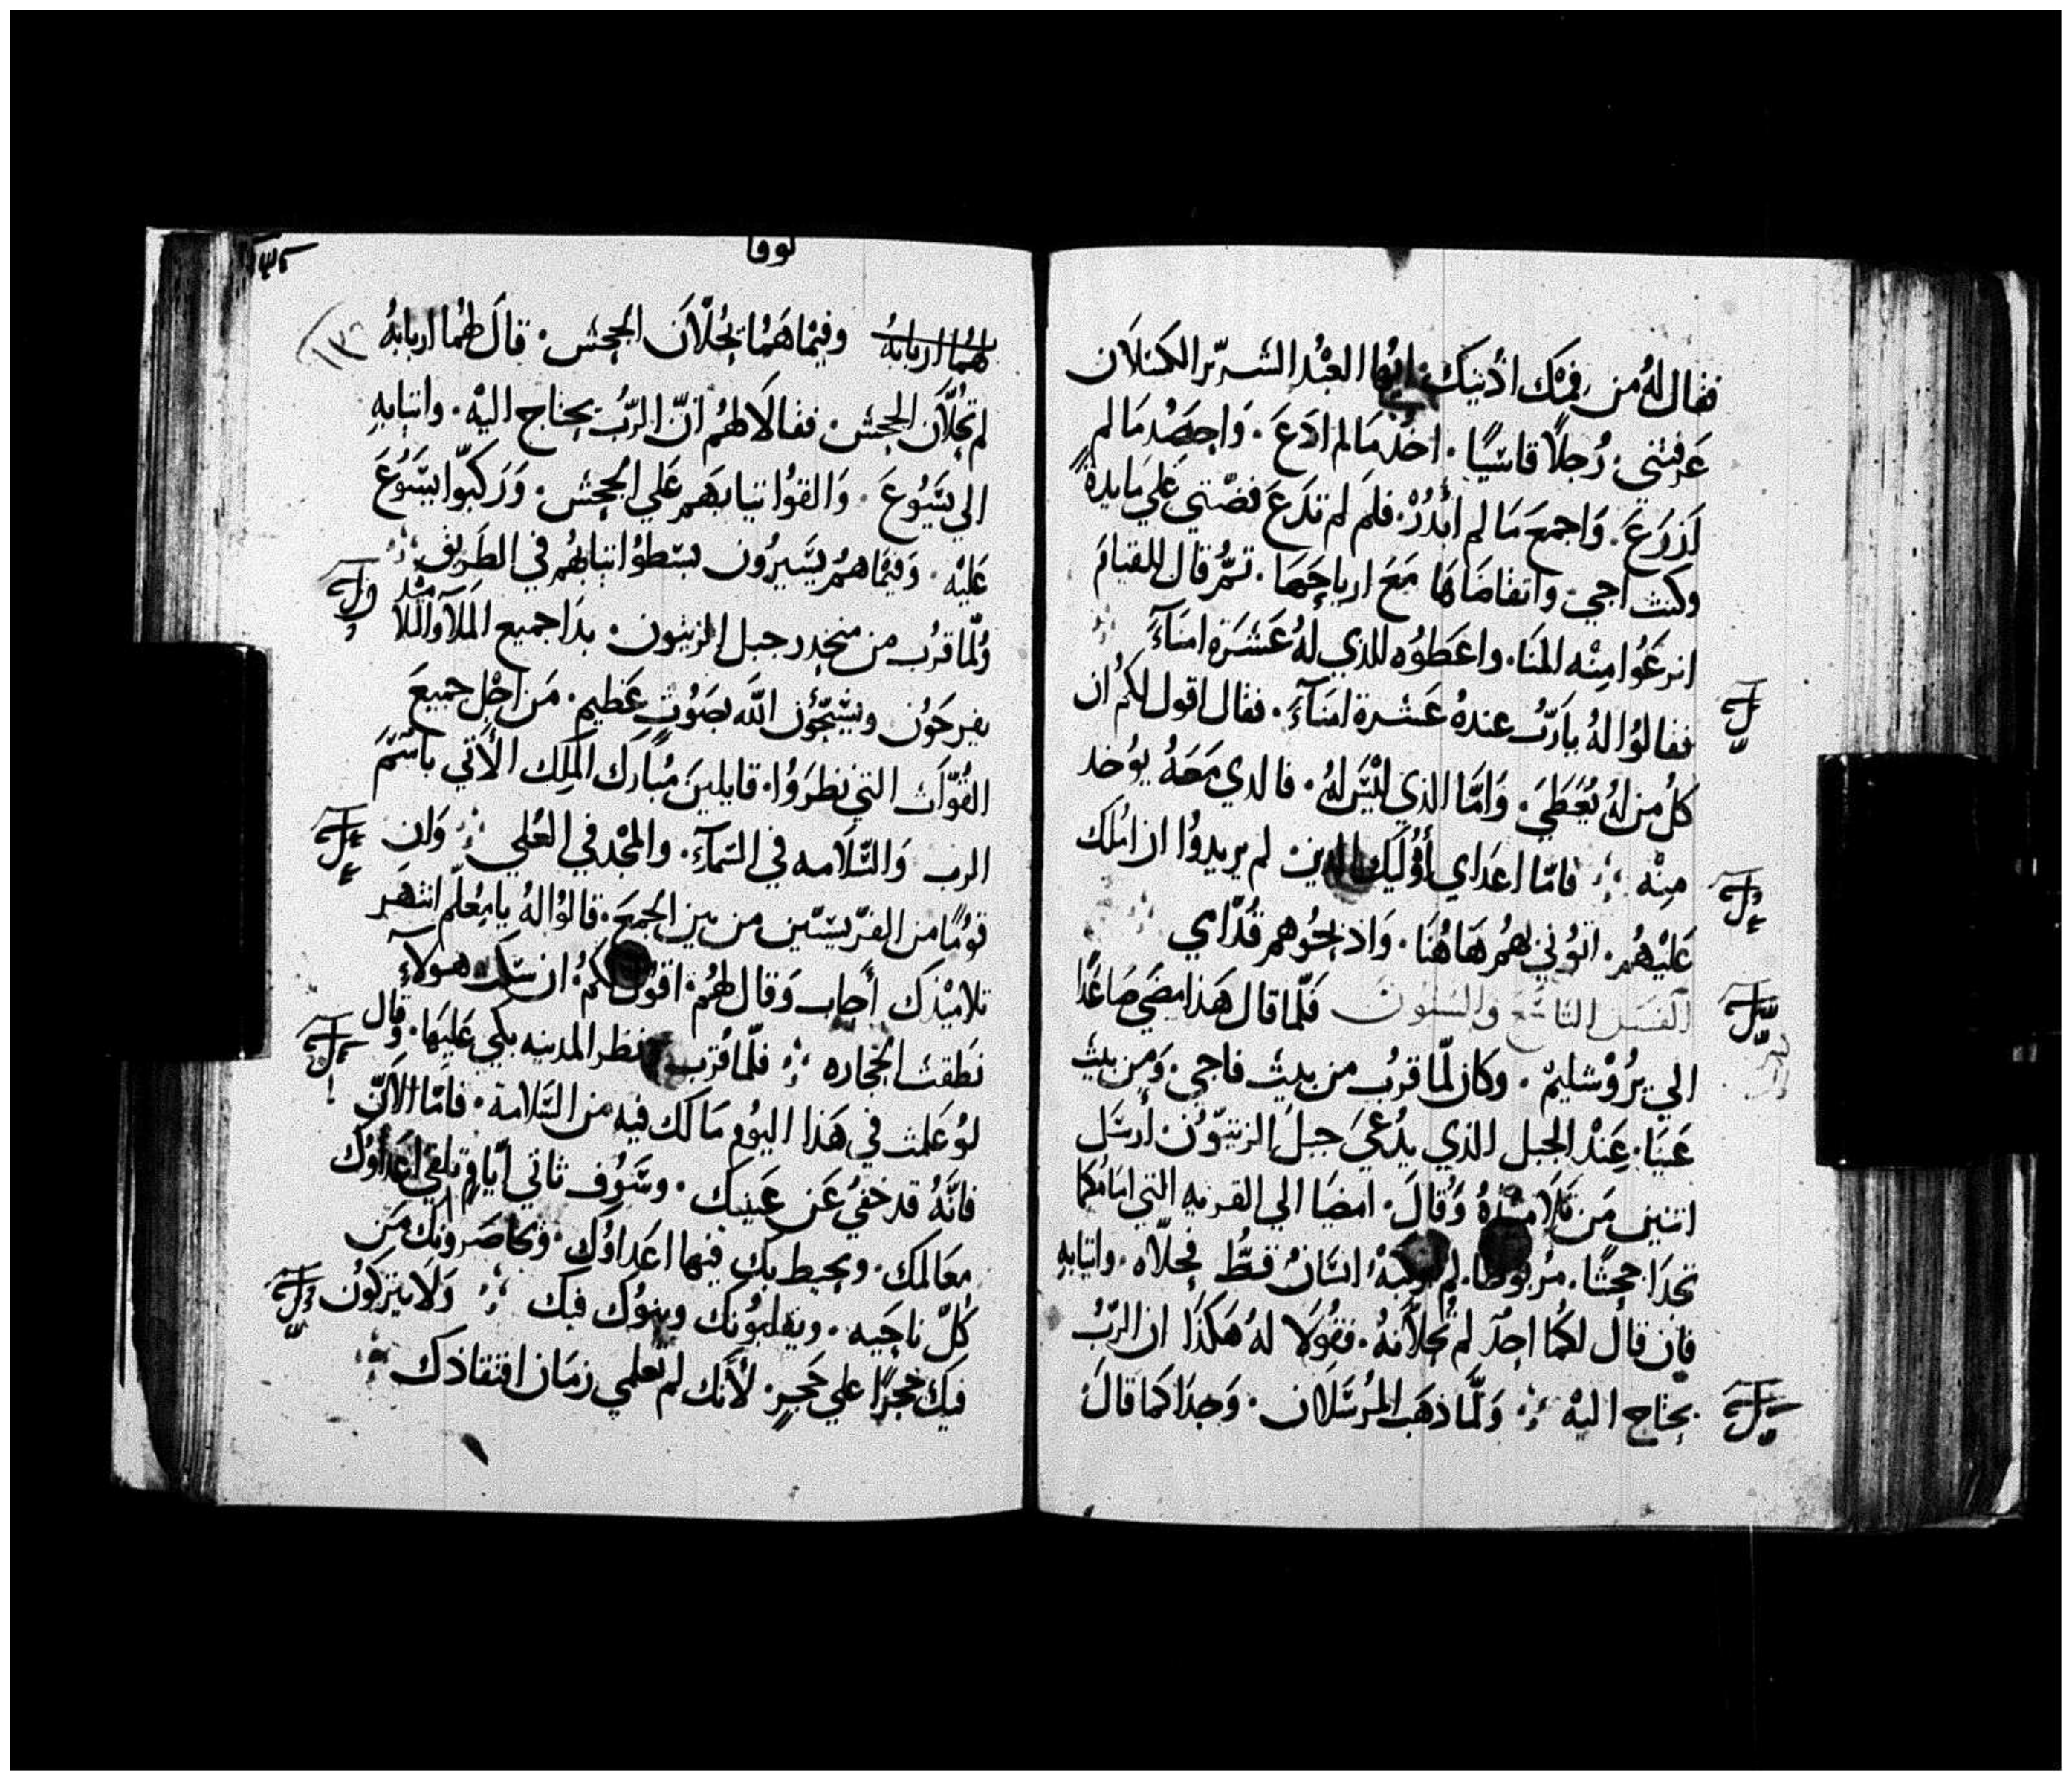 فقال لهُ من فمك ادُنيك ايُها العبْد الشريّر الكَسلاَن
عَرفتني رُجلاً قاسَيًا. اخُد مَا لم ادَعَ. وَاحِصَدُ مَا لم
لَزرَعَ. وَاجمعَ مَا لم أبَدُرْ. فلمَ لم تدَعَ فضّتي عَلي مَايدةٍ
وكنت اجي واتقاضَاهَا مَعَ ارباحَهَا. تمُر قال للقيامَ
انزعَوُا مِنْه المَنَا. واعَطوُه للذي لهُ عَشَرَة امنَآءَ
فقالوُا لهُ يارَبُ عندهُ عَشرة امَنَآءَ. فقال اقول لكمُ ان
كلُ من لهُ يُعَطَىَ. وَامّا الذي ليْسَ لهُ. فالدي مَعَهُ يوُخد
مِنْه فامّا اعَداي أوُلَيِكَ الدين لم يريدوُا ان املك
عَليْهُم. اتوُني بهمُر هَاهُنَا. وَادبحُوهم قُدّامي
الفصل التاسَع والستون فَلّما قال هَذا مضَي صَاعَدًا
الي يرُوْشليمْ. وكان لمّا قربُ من بيت فاجي. وَمن بيت
عَنيَا. عِنْد الجبل الذي يدُعيَ جبلَ الزيتوُن. أرسَل
اثنين مَن تَلاَميْدهُ وَقالَ. امضيَا الي القريه التي امَامُكما
تجدَا جحشًا. مربوُطا. لم يركبهُ انسَانُ قطُّ فحلاّه. واتيابهِ
فان قال لكمُا احدٌ لم تُحلاّنهُ. فقوُلا لهُ هَكذَا ان الرّبُ
يحتاج اليْه وَلَمّا ذهَب المرُسَلان. وَجدَا كما قالَ
لوقا
لهمُا اربابهُ وفيْمَا هَمُا يُحلاّن الجحش. قالَ لهمُا اربابهُ
لم تحُلاّن الجحش. فقالاَ لهمُ انّ الرّبُ يحتاج اليْه. واتيابهِ
الي يسَوُعَ. وَالقوُا تيابهَم عَلي الجحش. وَرَكبوّا يسَوُعَ
عَليْه. وَفيمَا همُر يسَيرُون بسَطوُا تيابهُم في الطَريق
وُلّما قربُ من منحدر جبل الزيتون. بدَا جميع المَلآ والتلاميْد
يفرحَوُن ويسَبّحوُن اللّه بصَوُتٍ عَظيم. مَن اجْل جميعَ
القوّات التي نظرَوُا. قايلينَ مُبارَك المَلِك الآتي باسَمَ
الرب وَالسّلامه في السّمآءَ. والمجْد في العُلي وَان
قومًا من الفرّيسَيّين من بين الجمعَ. قالوُا لهُ يا معُلّم انتهَر
تلاميْذك أجاب وَقال لهمُ. اقول لكمُ ان سَكت هولآءِ
نَطقت الحجاره فلّما قرب نظر المدينه بكي عَليهَا. وقال
لوُ عَلمت في هَذا اليوُم مَا لك فيه من السَلامة. فامّا الآن
فانَهُ قد خفيُ عَن عَينيك. وسَوُف تاتي ايّام تلقي اعَداوُك
معَالمك. ويحيط بك فيها اعَداوُك. وَيحاصَروُنك مَن
كلّ ناحيَه. ويقلبوُنك وبنوُك فيك وَلا يتركوُن
فيك حجرًا علي حَجرٍ. لأنَك لم تعلمي زمَان افتقادك